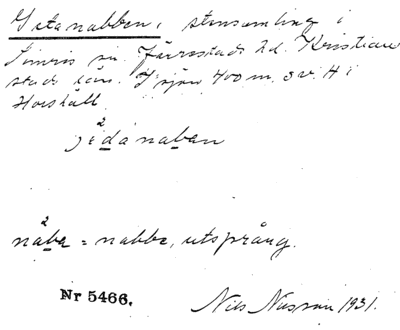 Getanabben, stensamling i
Simris sn. Järrestads hd. Kristian
stads län. I sjön 400 m. sv. H i
jedanaben
2
naba = nabbe, utsprång.
2
Nr 5466.
Nils 1931.